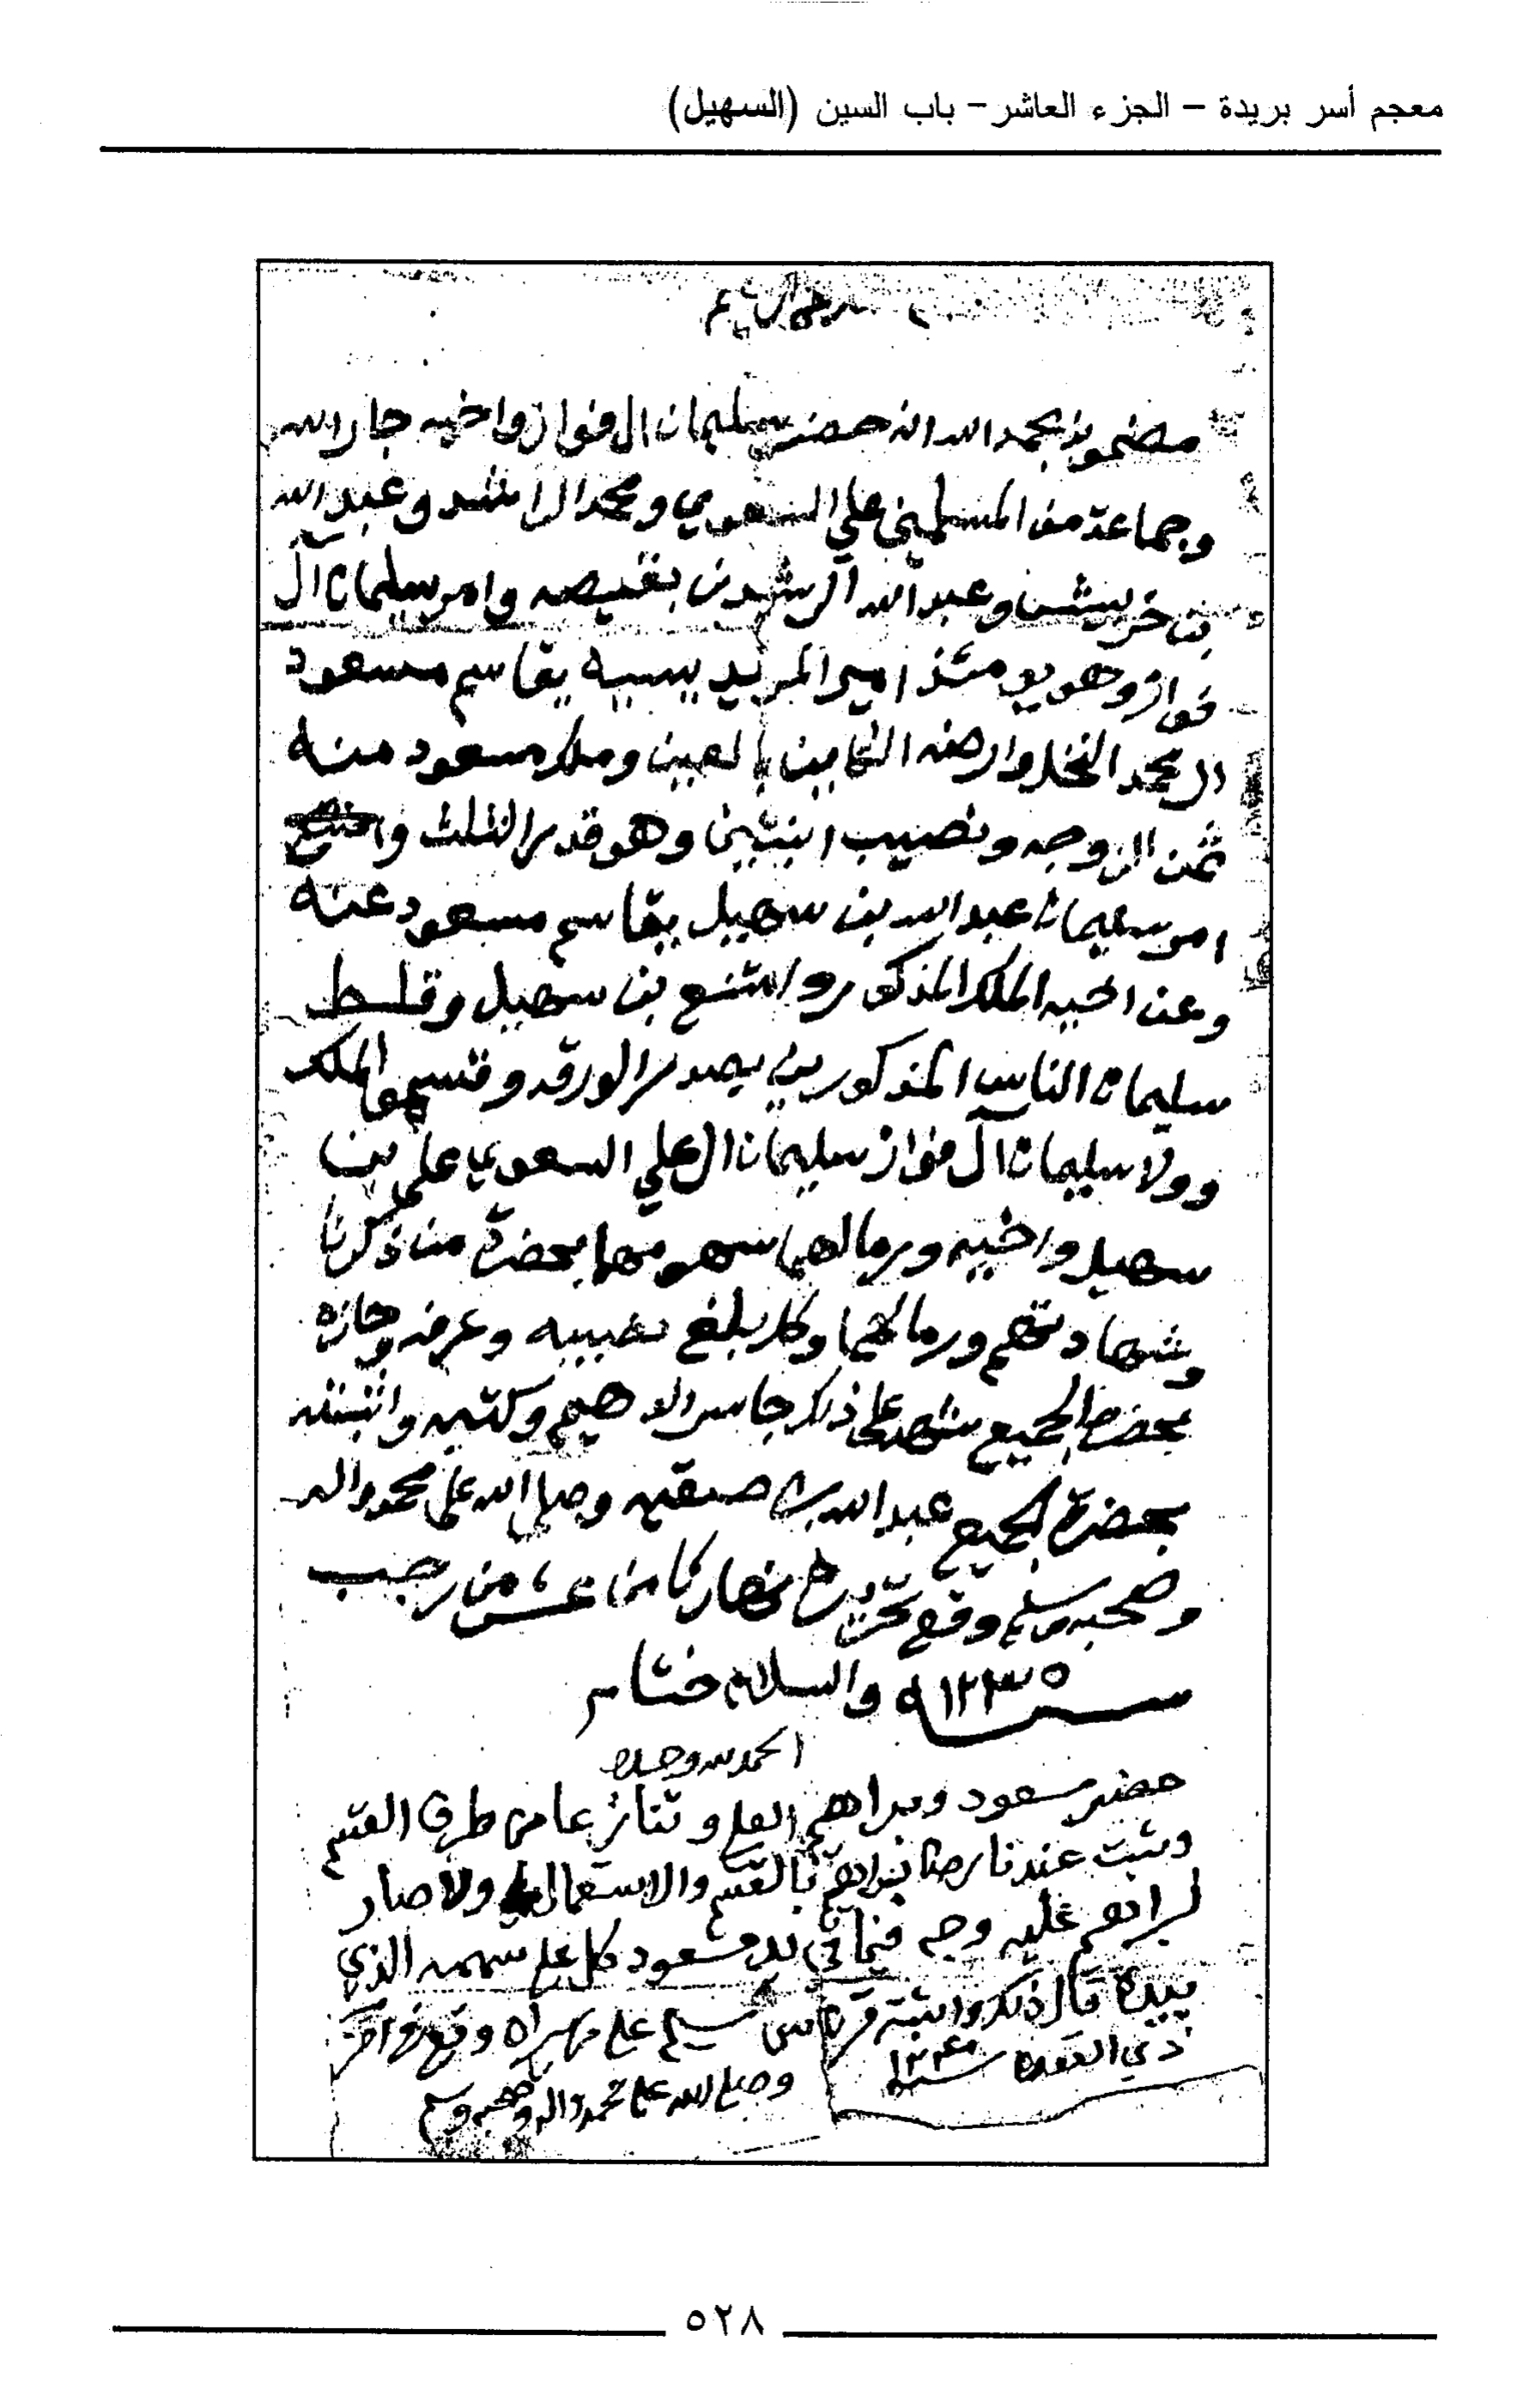 معجم أسر بريدة – الجزء العاشر – باب السين (السهيل)
مضمونه بحمد الله انه حضر سليمان ال فواز واخيه جار الله
وجماعة من المسلمين علي السعوي ومحمد الراشد وعبدالله
بن خريش وعبدالله الرشيد بن بقيصه وامر سليمان آل
فواز وهو يومئذ امير المريديسيه يقاسم مسعود
ال محمد النخل وارضه بالعين وملك مسعود منه
ثمن الزوجه ونصيب ابنتين وهو قدر الثلث
امر سليمان عبدالله بن سهيل يقاسم مسعود عنه
وعن اخيه الملك المذكور وامتنع بن سهيل وقلط
سليمان الناس المذكورين بصدر الورقه وقسموا الملك
وولا سليمان آل فواز سليمان ال علي السعوي على بن
سهيل واخيه ورما لهما سهومهما بحضرة من ذكرنا
وشهادتهم ورما لهما وكل بلغ نصيبه وعرفه وحازه
بحضرة الجميع شهد على ذلك جاسر ال وكتبه واثبته
بحضرة الجميع عبدالله بن صنقيه وصلى الله على محمد واله
وصحبه وسلم وقع تحريره نهار من رجب
سنة ١٢٣٥ والسلام ختام
الحمد لله وحده
حضر مسعود وبراهيم العلي وتنازعا من طرف القسم
وثبت عندنا رضا براهيم بالقسم والاستعمال ولا صار
لبراهيم عليه وجه فيما في يد مسعود كل على سهمه الذي
بيده قال ذلك واثبته سليم على وقع في آخر
ذي القعده سنة ١٢٤٠ وصلى الله على محمد واله وصحبه وسلم
٥٢٨